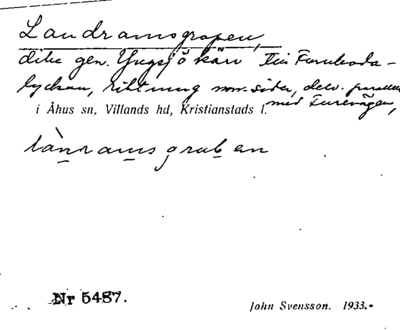 Landramsgropen,
dike gen. Yngsjö kärr till Furuboda-
lyckan, riktning nnv. sidan, delv. parallell
med Furevägen,
i Åhus sn, Villands hd, Kristianstads l.
lànramsgraben
Nr 5487.
John Svensson. 1933.-